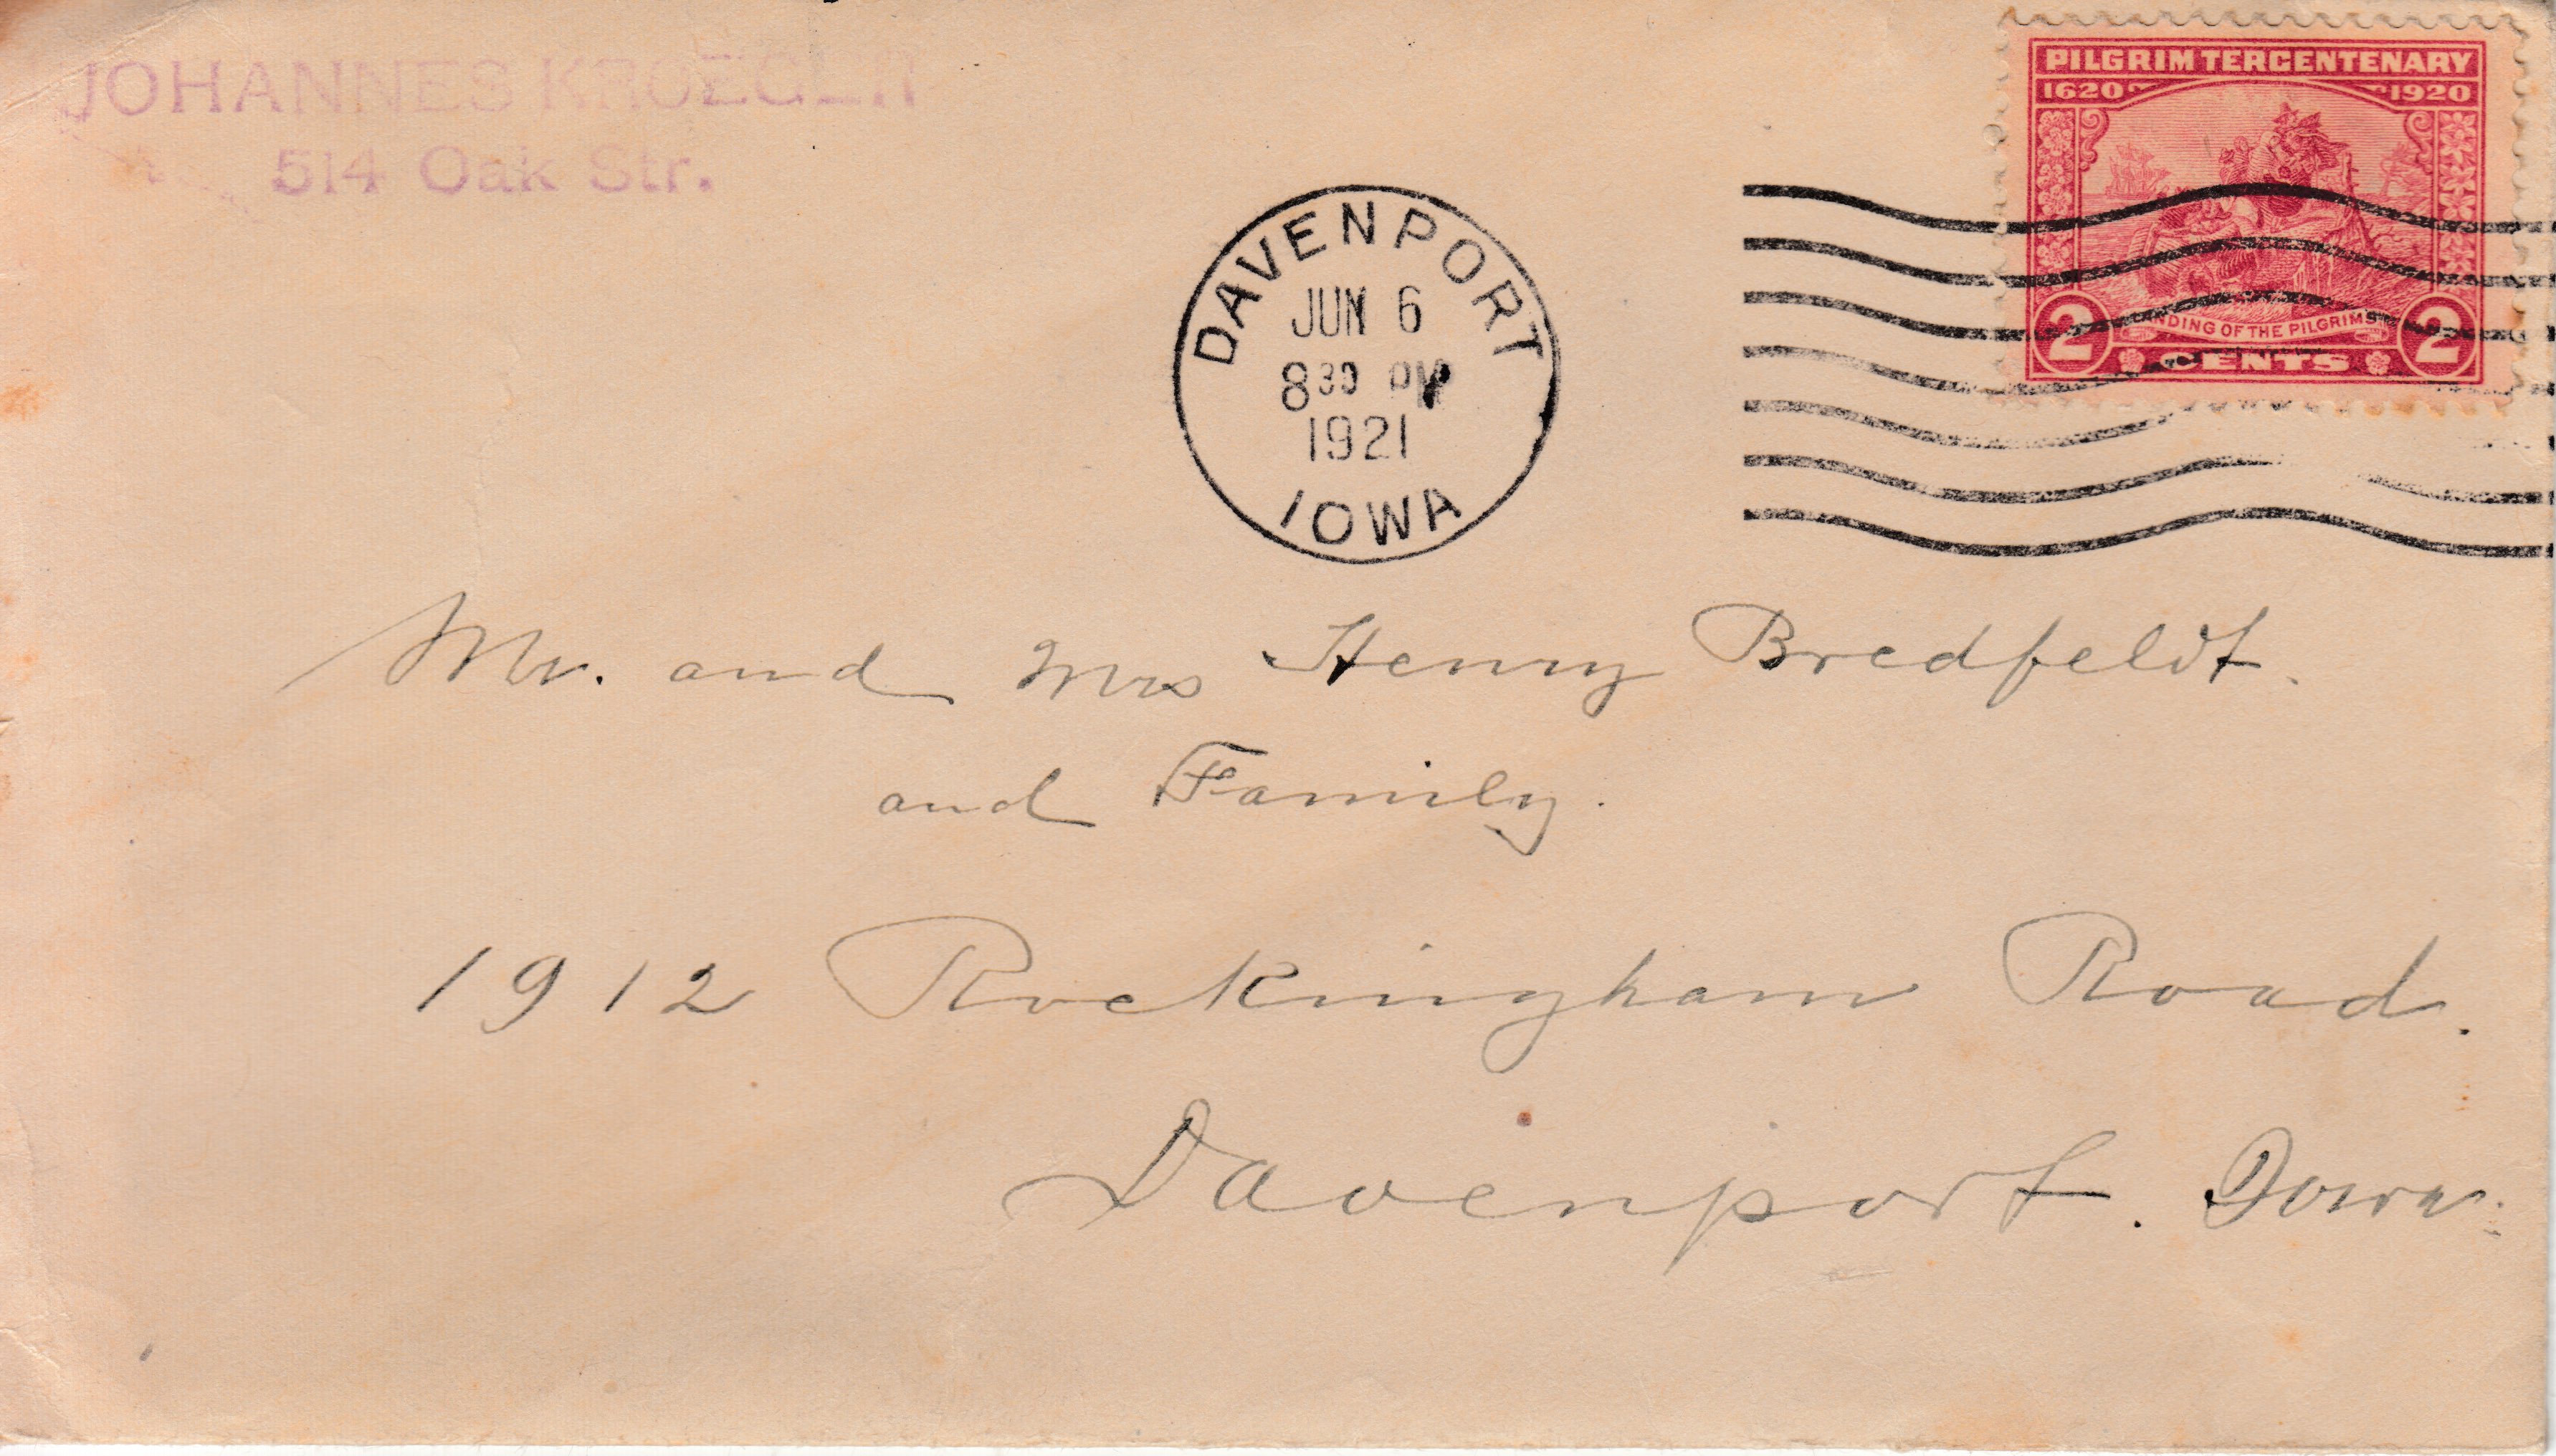 JOHANNES KROEGER
514 Oak Str.
PILGRIM TERCENTENARY
1620 1920
LANDING OF THE PILGRIMS
2 CENTS 2
DAVENPORT
JUN 6
8 30 PM
1921
IOWA
Mr. and Mrs Henry Bredfeldt.
and Family.
1912 Rockingham Road.
Davenport. Iowa.